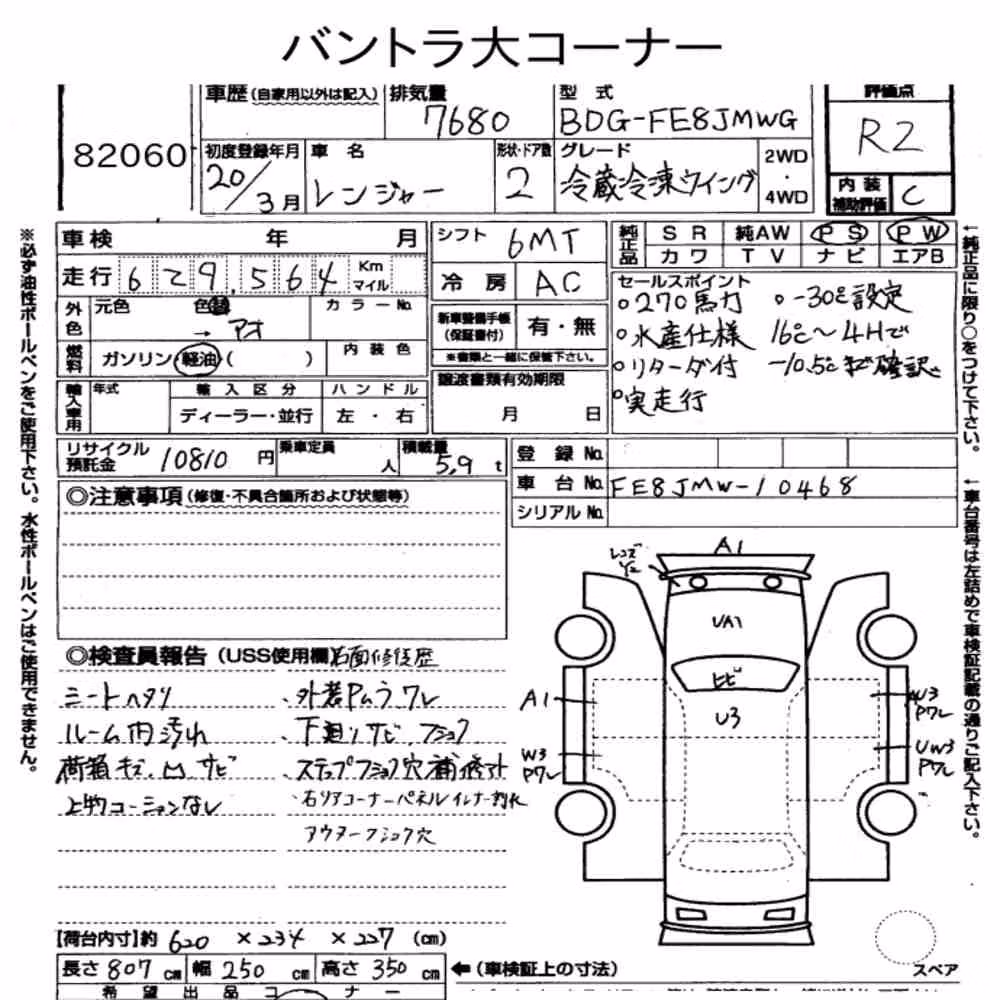 バントラ大コーナー
82060
車歴 (自家用以外は記入) 排気量 型式 評価点
7680 BDG-FE8JMWG R2
初度登録年月 車名 形状・ドア数 グレード 2WD・4WD
20/3月 レンジャー 2 冷蔵冷凍ウイング
内装補助評価 C
車検 年 月 シフト 6MT
純正品 SR 純AW PS PW
カワ TV ナビ エアB
走行 629,564 Km マイル 冷房 AC
外色 元色 色替 カラーNo.
→ アオ
新車整備手帳 (保証書付) 有・無
※書類と一緒に保管下さい。
燃料 ガソリン 軽油 ( ) 内装色
セールスポイント
○270馬力 ○-30℃設定
○水産仕様 16℃〜4Hで
○リターダ付 -10.5℃まで確認
○実走行
輸入車用 年式 輸入区分 ハンドル
ディーラー・並行 左・右
譲渡書類有効期限
月 日
リサイクル預託金 10810円 乗車定員 人 積載量 5.9t
登録No.
車台No. FE8JMW-10468
シリアルNo.
◎注意事項 (修復・不具合箇所および状態等)
◎検査員報告 (USS使用欄) 右面修復歴
シートヘタリ ・外装キムラワレ
ルーム内汚れ ・下廻りサビ、フショク
荷箱キズ、凹、サビ ・ステップフショク穴補修アト
上物コーションなし ・右リアコーナーパネルインナー割れ
アウターフショク穴
レンズ
Y2
A1
UA1
ヒビ
U3
A1
W3
PワレU3
Pワレ
UW3
Pワレ
スペア
【荷台内寸】約 620 ×234 ×227 (cm)
長さ 807 cm 幅 250 cm 高さ 350 cm ←(車検証上の寸法)
希望出品コーナー
※必ず油性ボールペンをご使用下さい。水性ボールペンはご使用できません。
←純正品に限り○をつけて下さい。
←車台番号は左詰めで車検証記載の通りご記入下さい。